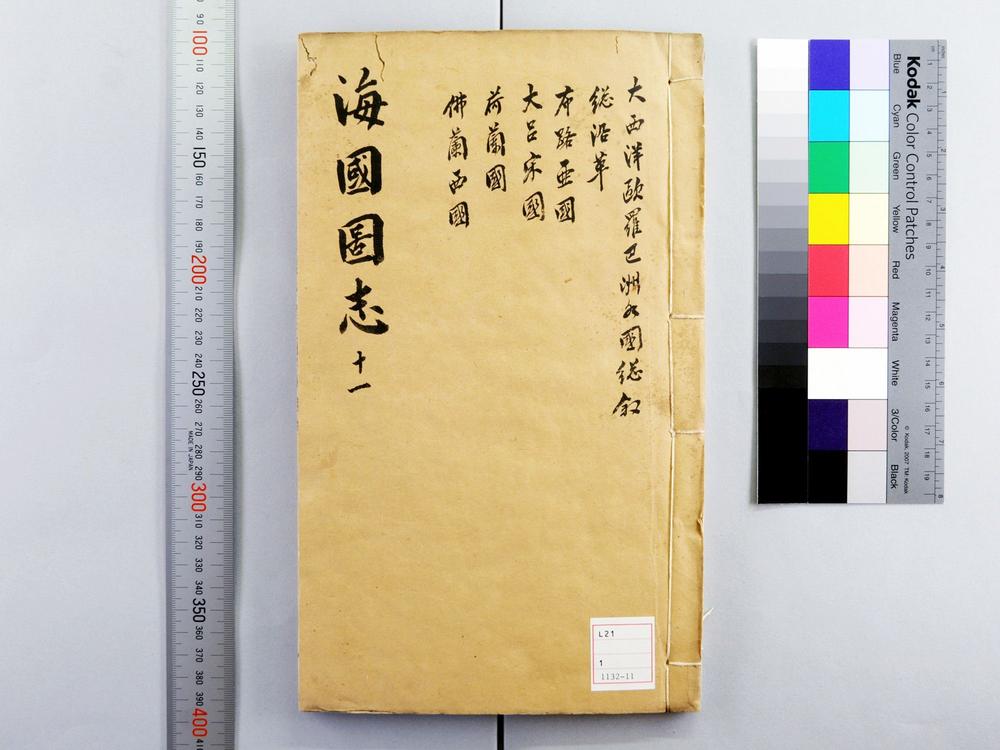 大西洋歐羅巴洲各國總敘
總沿革
布路亞國
大呂宋國
荷蘭國
佛蘭西國
海國圖志 十一
L21
1
1132-11
Kodak Color Control Patches
Blue
Cyan
Green
Yellow
Red
Magenta
White
3/Color
Black
© Kodak, 2007 TM: Kodak
90
100
110
120
130
140
150
160
170
180
190
200
210
220
230
240
250
260
270
280
290
300
310
320
330
340
350
360
370
380
390
400
MADE IN JAPAN
1
2
3
4
5
6
7
8
9
10
11
12
13
14
15
16
17
18
19